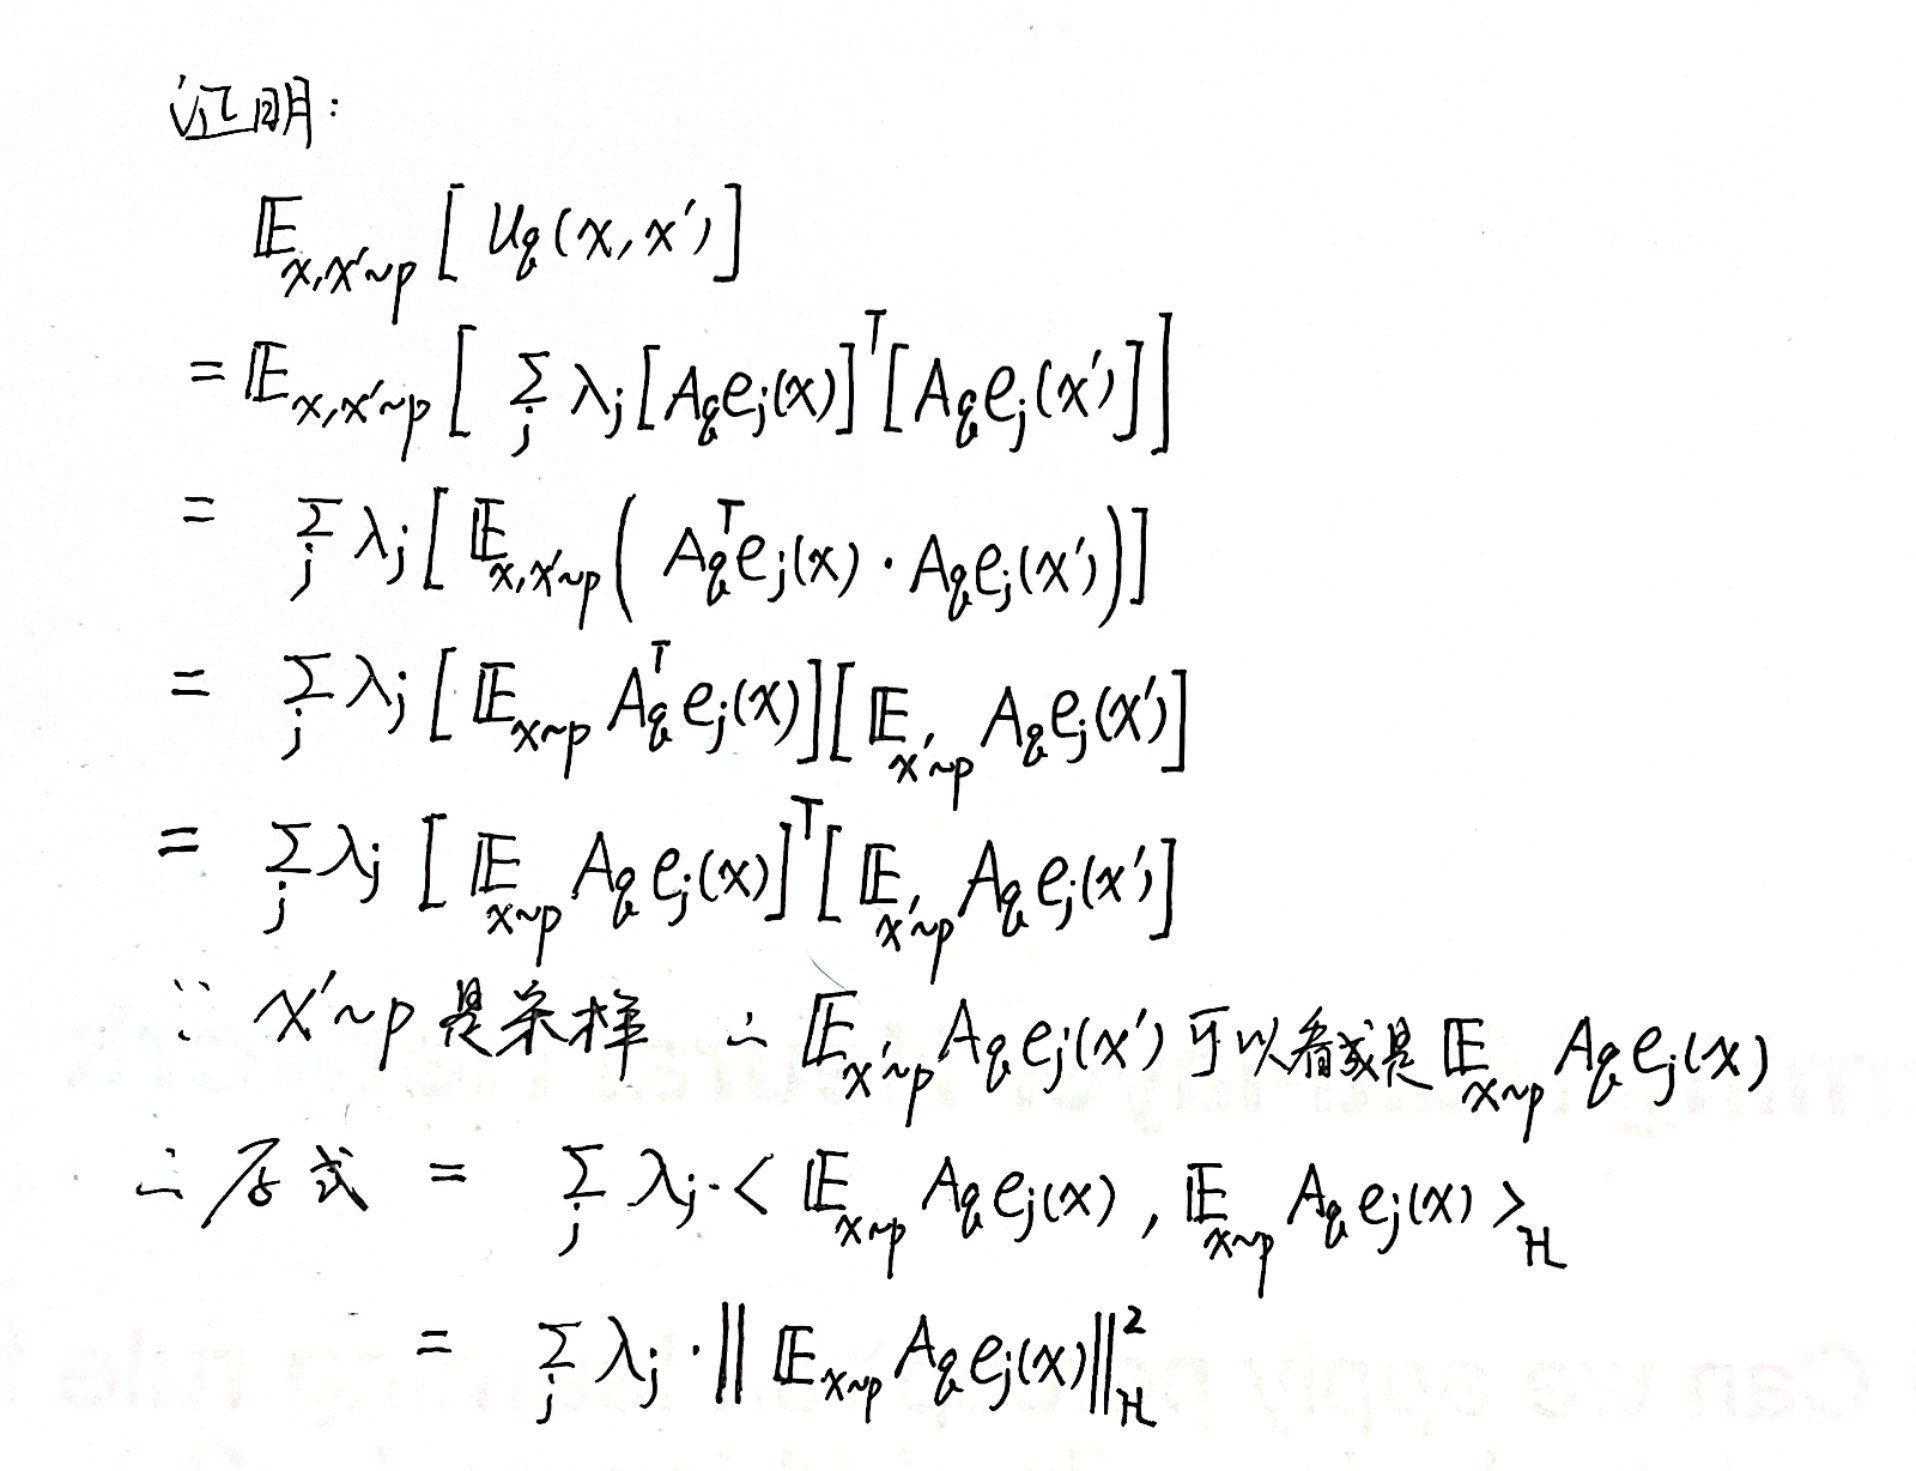 证明:
𝔼_{x,x'~p} [ u_q(x, x') ]
= 𝔼_{x,x'~p} [ Σ_j λ_j [A_q e_j(x)]^T [A_q e_j(x')] ]
= Σ_j λ_j [ 𝔼_{x,x'~p} ( A_q^T e_j(x) · A_q e_j(x') ) ]
= Σ_j λ_j [ 𝔼_{x~p} A_q^T e_j(x) ] [ 𝔼_{x'~p} A_q e_j(x') ]
= Σ_j λ_j [ 𝔼_{x~p} A_q e_j(x) ]^T [ 𝔼_{x'~p} A_q e_j(x') ]
∵ x'~p 是采样 ∴ 𝔼_{x'~p} A_q e_j(x') 可以看成是 𝔼_{x~p} A_q e_j(x)
∴ 原式 = Σ_j λ_j · < 𝔼_{x~p} A_q e_j(x), 𝔼_{x~p} A_q e_j(x) >_H
= Σ_j λ_j · ‖ 𝔼_{x~p} A_q e_j(x) ‖_H^2